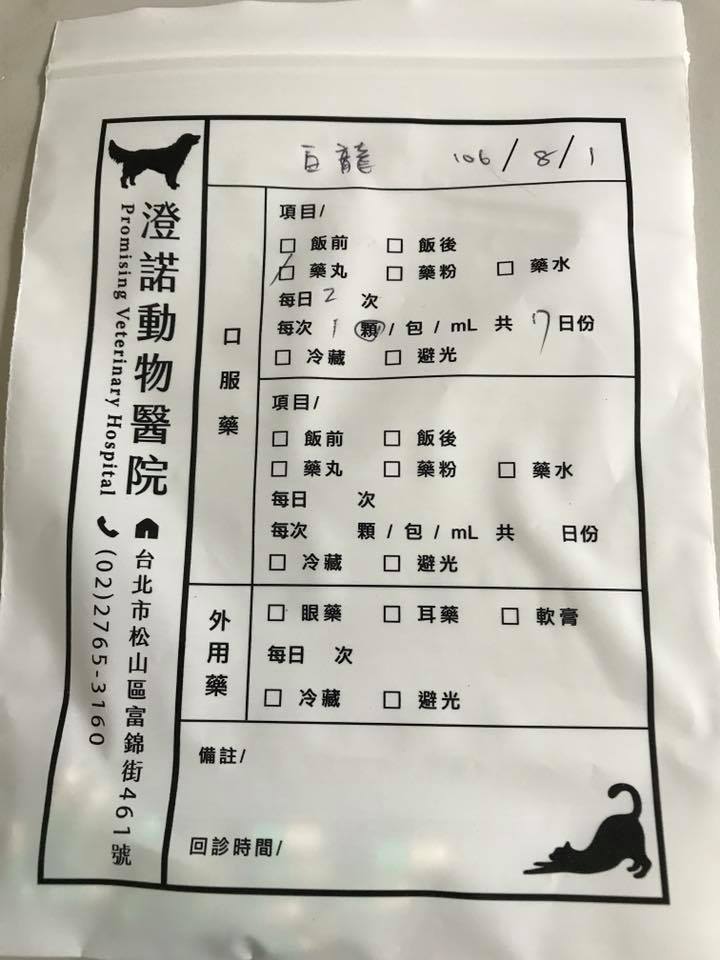 巨龍 106/8/1
澄諾動物醫院
Promising Veterinary Hospital
台北市松山區富錦街461號
(02)2765-3160
口服藥
項目/
□ 飯前 □ 飯後
☑ 藥丸 □ 藥粉 □ 藥水
每日 2 次
每次 1 顆 / 包 / mL 共 7 日份
□ 冷藏 □ 避光
項目/
□ 飯前 □ 飯後
□ 藥丸 □ 藥粉 □ 藥水
每日 次
每次 顆 / 包 / mL 共 日份
□ 冷藏 □ 避光
外用藥
□ 眼藥 □ 耳藥 □ 軟膏
每日 次
□ 冷藏 □ 避光
備註/
回診時間/